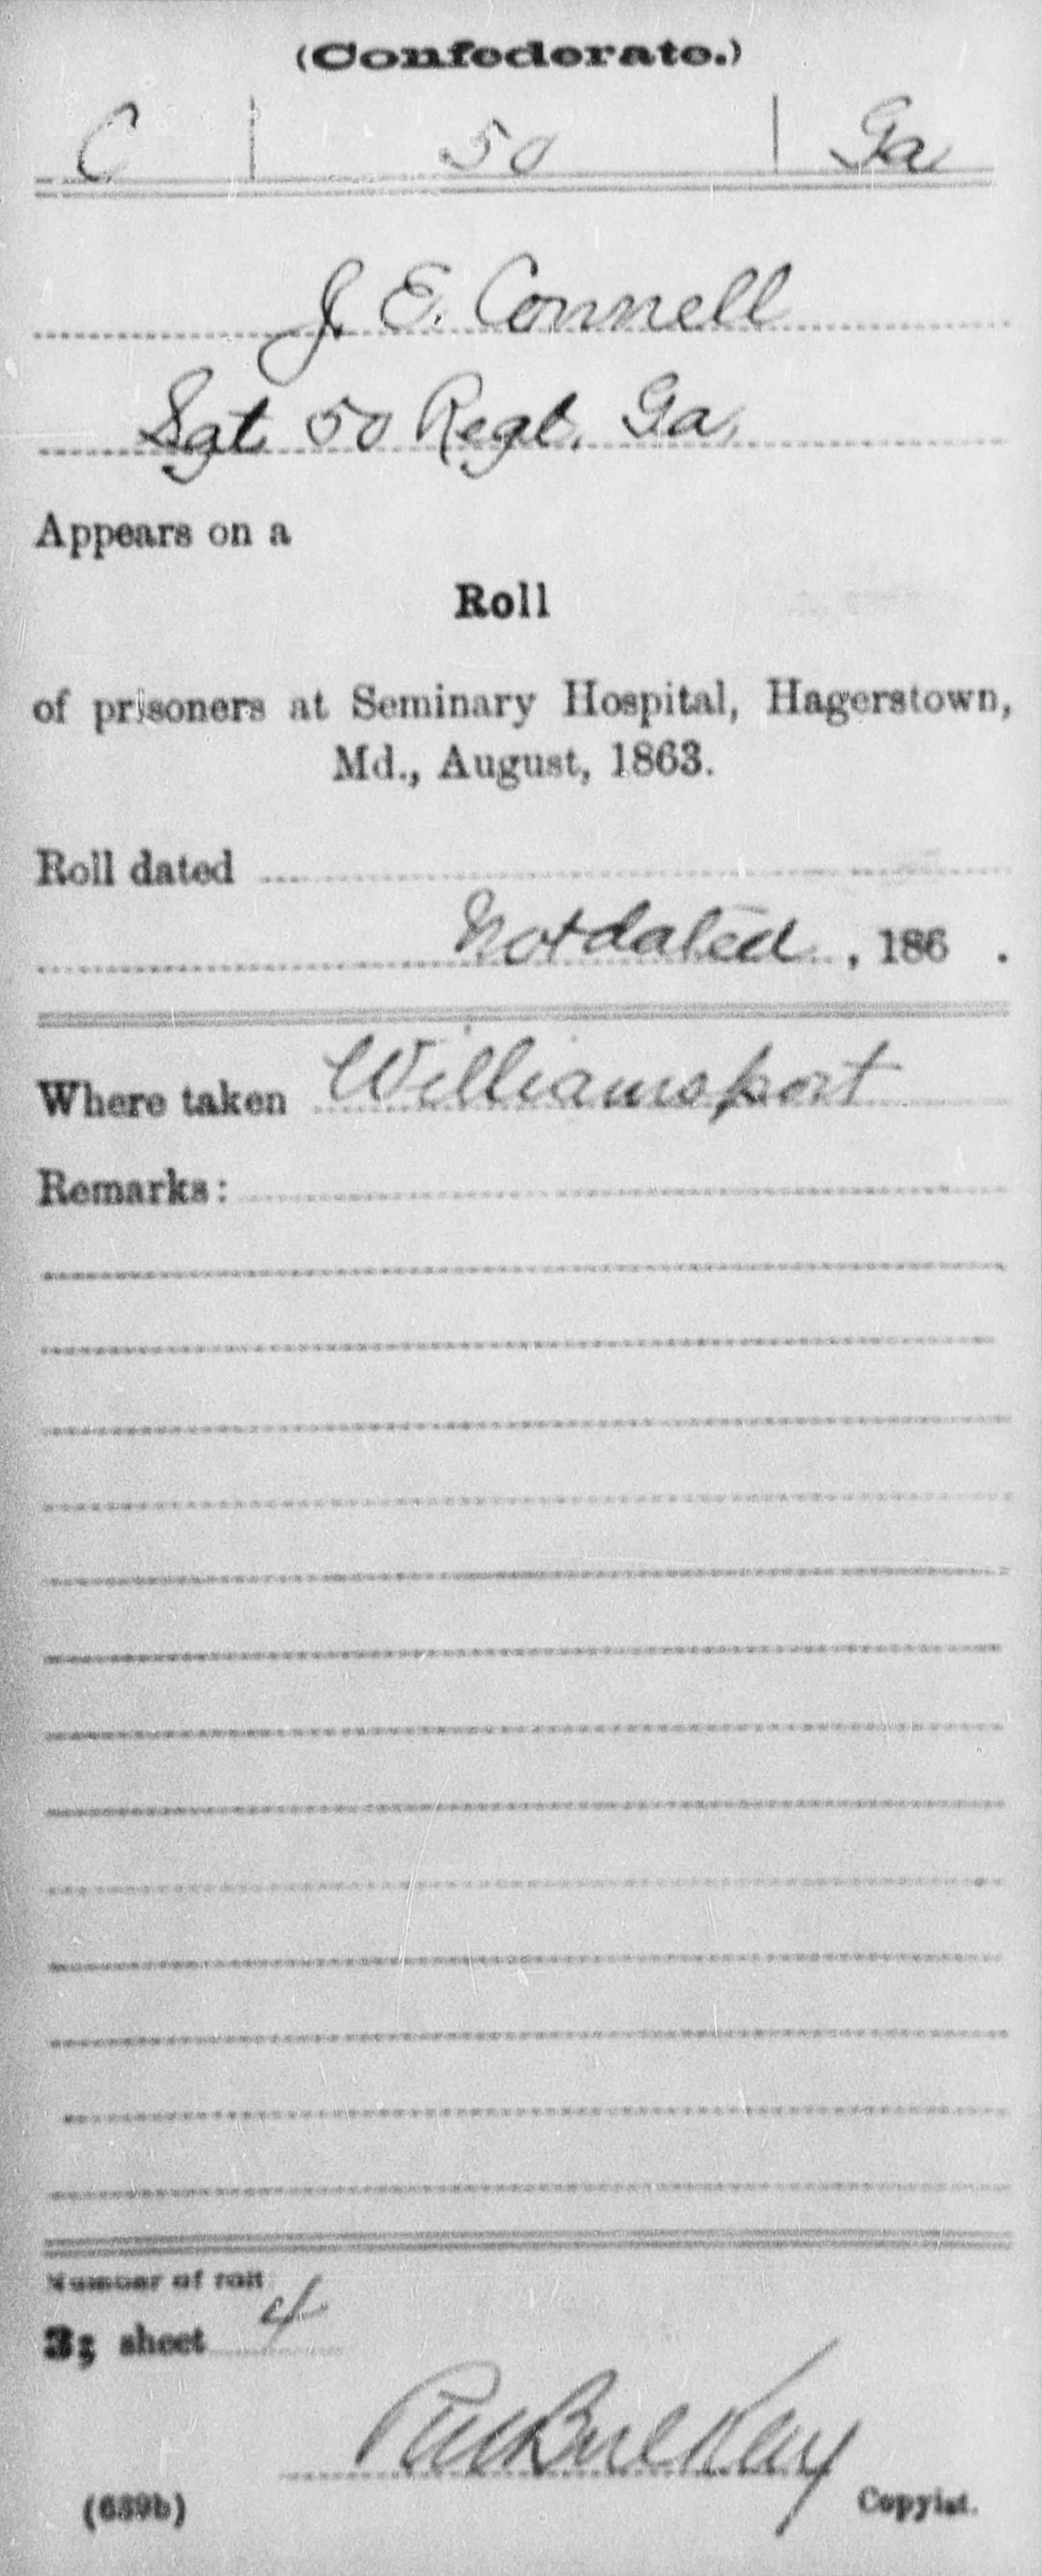 (Confederate.)
C | 50 | Ga
J. E. Connell
Sgt 50 Regt. Ga.
Appears on a
Roll
of prisoners at Seminary Hospital, Hagerstown,
Md., August, 1863.
Roll dated
Not dated, 186 .
Where taken Williamsport
Remarks:
Number of roll
3; sheet 4
Bulkley
(639b) Copyist.